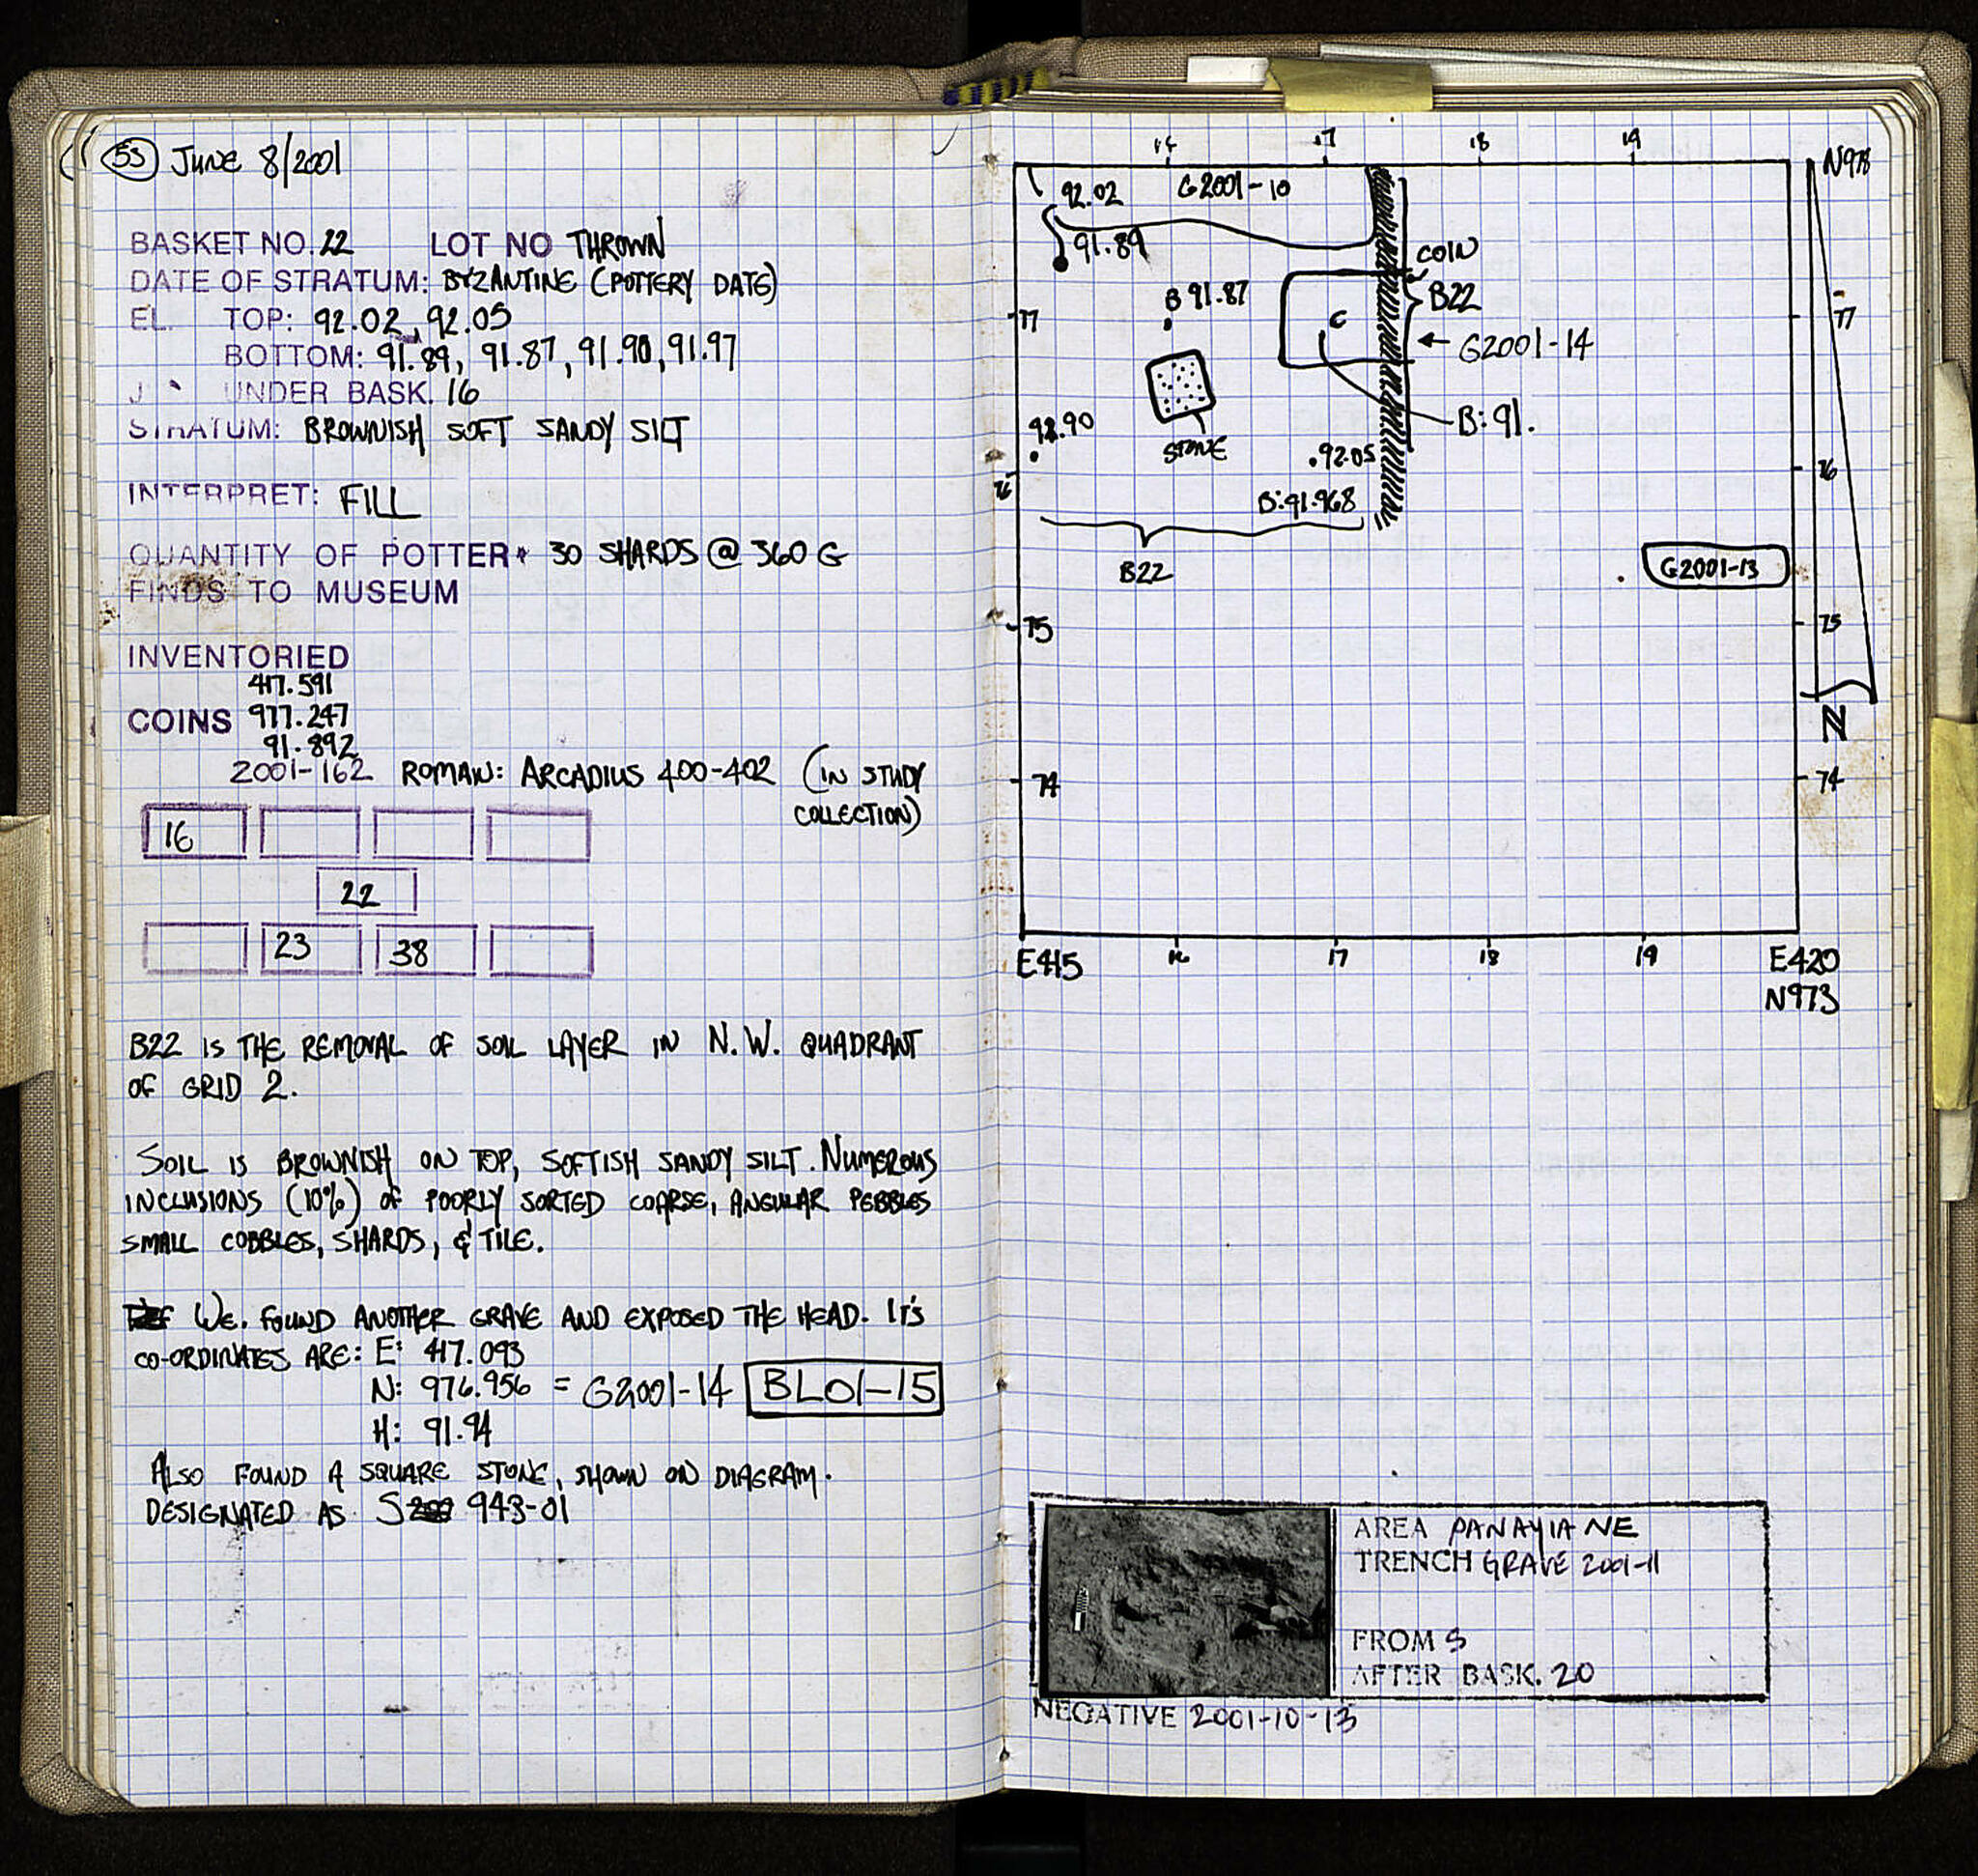 53 JUNE 8/2001
BASKET NO. 22 LOT NO THROWN
DATE OF STRATUM: BYZANTINE (POTTERY DATE)
EL. TOP: 92.02, 92.05
BOTTOM: 91.89, 91.87, 91.90, 91.97
UNDER BASK. 16
STRATUM: BROWNISH SOFT SANDY SILT
INTERPRET: FILL
QUANTITY OF POTTER 30 SHARDS @ 360 G
FINDS TO MUSEUM
INVENTORIED
417.591
COINS 977.247
91.892
2001-162 ROMAN: ARCADIUS 400-402 (IN STUDY
COLLECTION)
16
22
23 38
B22 IS THE REMOVAL OF SOIL LAYER IN N.W. QUADRANT
OF GRID 2.
SOIL IS BROWNISH ON TOP, SOFTISH SANDY SILT. NUMEROUS
INCLUSIONS (10%) OF POORLY SORTED COARSE, ANGULAR PEBBLES
SMALL COBBLES, SHARDS, & TILE.
WE. FOUND ANOTHER GRAVE AND EXPOSED THE HEAD. IT'S
CO-ORDINATES ARE: E: 417.093
N: 976.956 = G2001-14 BL01-15
H: 91.94
ALSO FOUND A SQUARE STONE, SHOWN ON DIAGRAM.
DESIGNATED AS S 943-01
16 17 18 19
N978
92.02 G2001-10
91.89
COIN
B 91.87
B22
77
C
77
G2001-14
B: 91.
91.90
STONE
.92.05
76
76
B: 91.968
B22
G2001-13
75
75
N
74
74
E415 16 17 18 19 E420
N973
AREA PANAYIA NE
TRENCH GRAVE 2001-11
FROM S
AFTER BASK. 20
NEGATIVE 2001-10-13